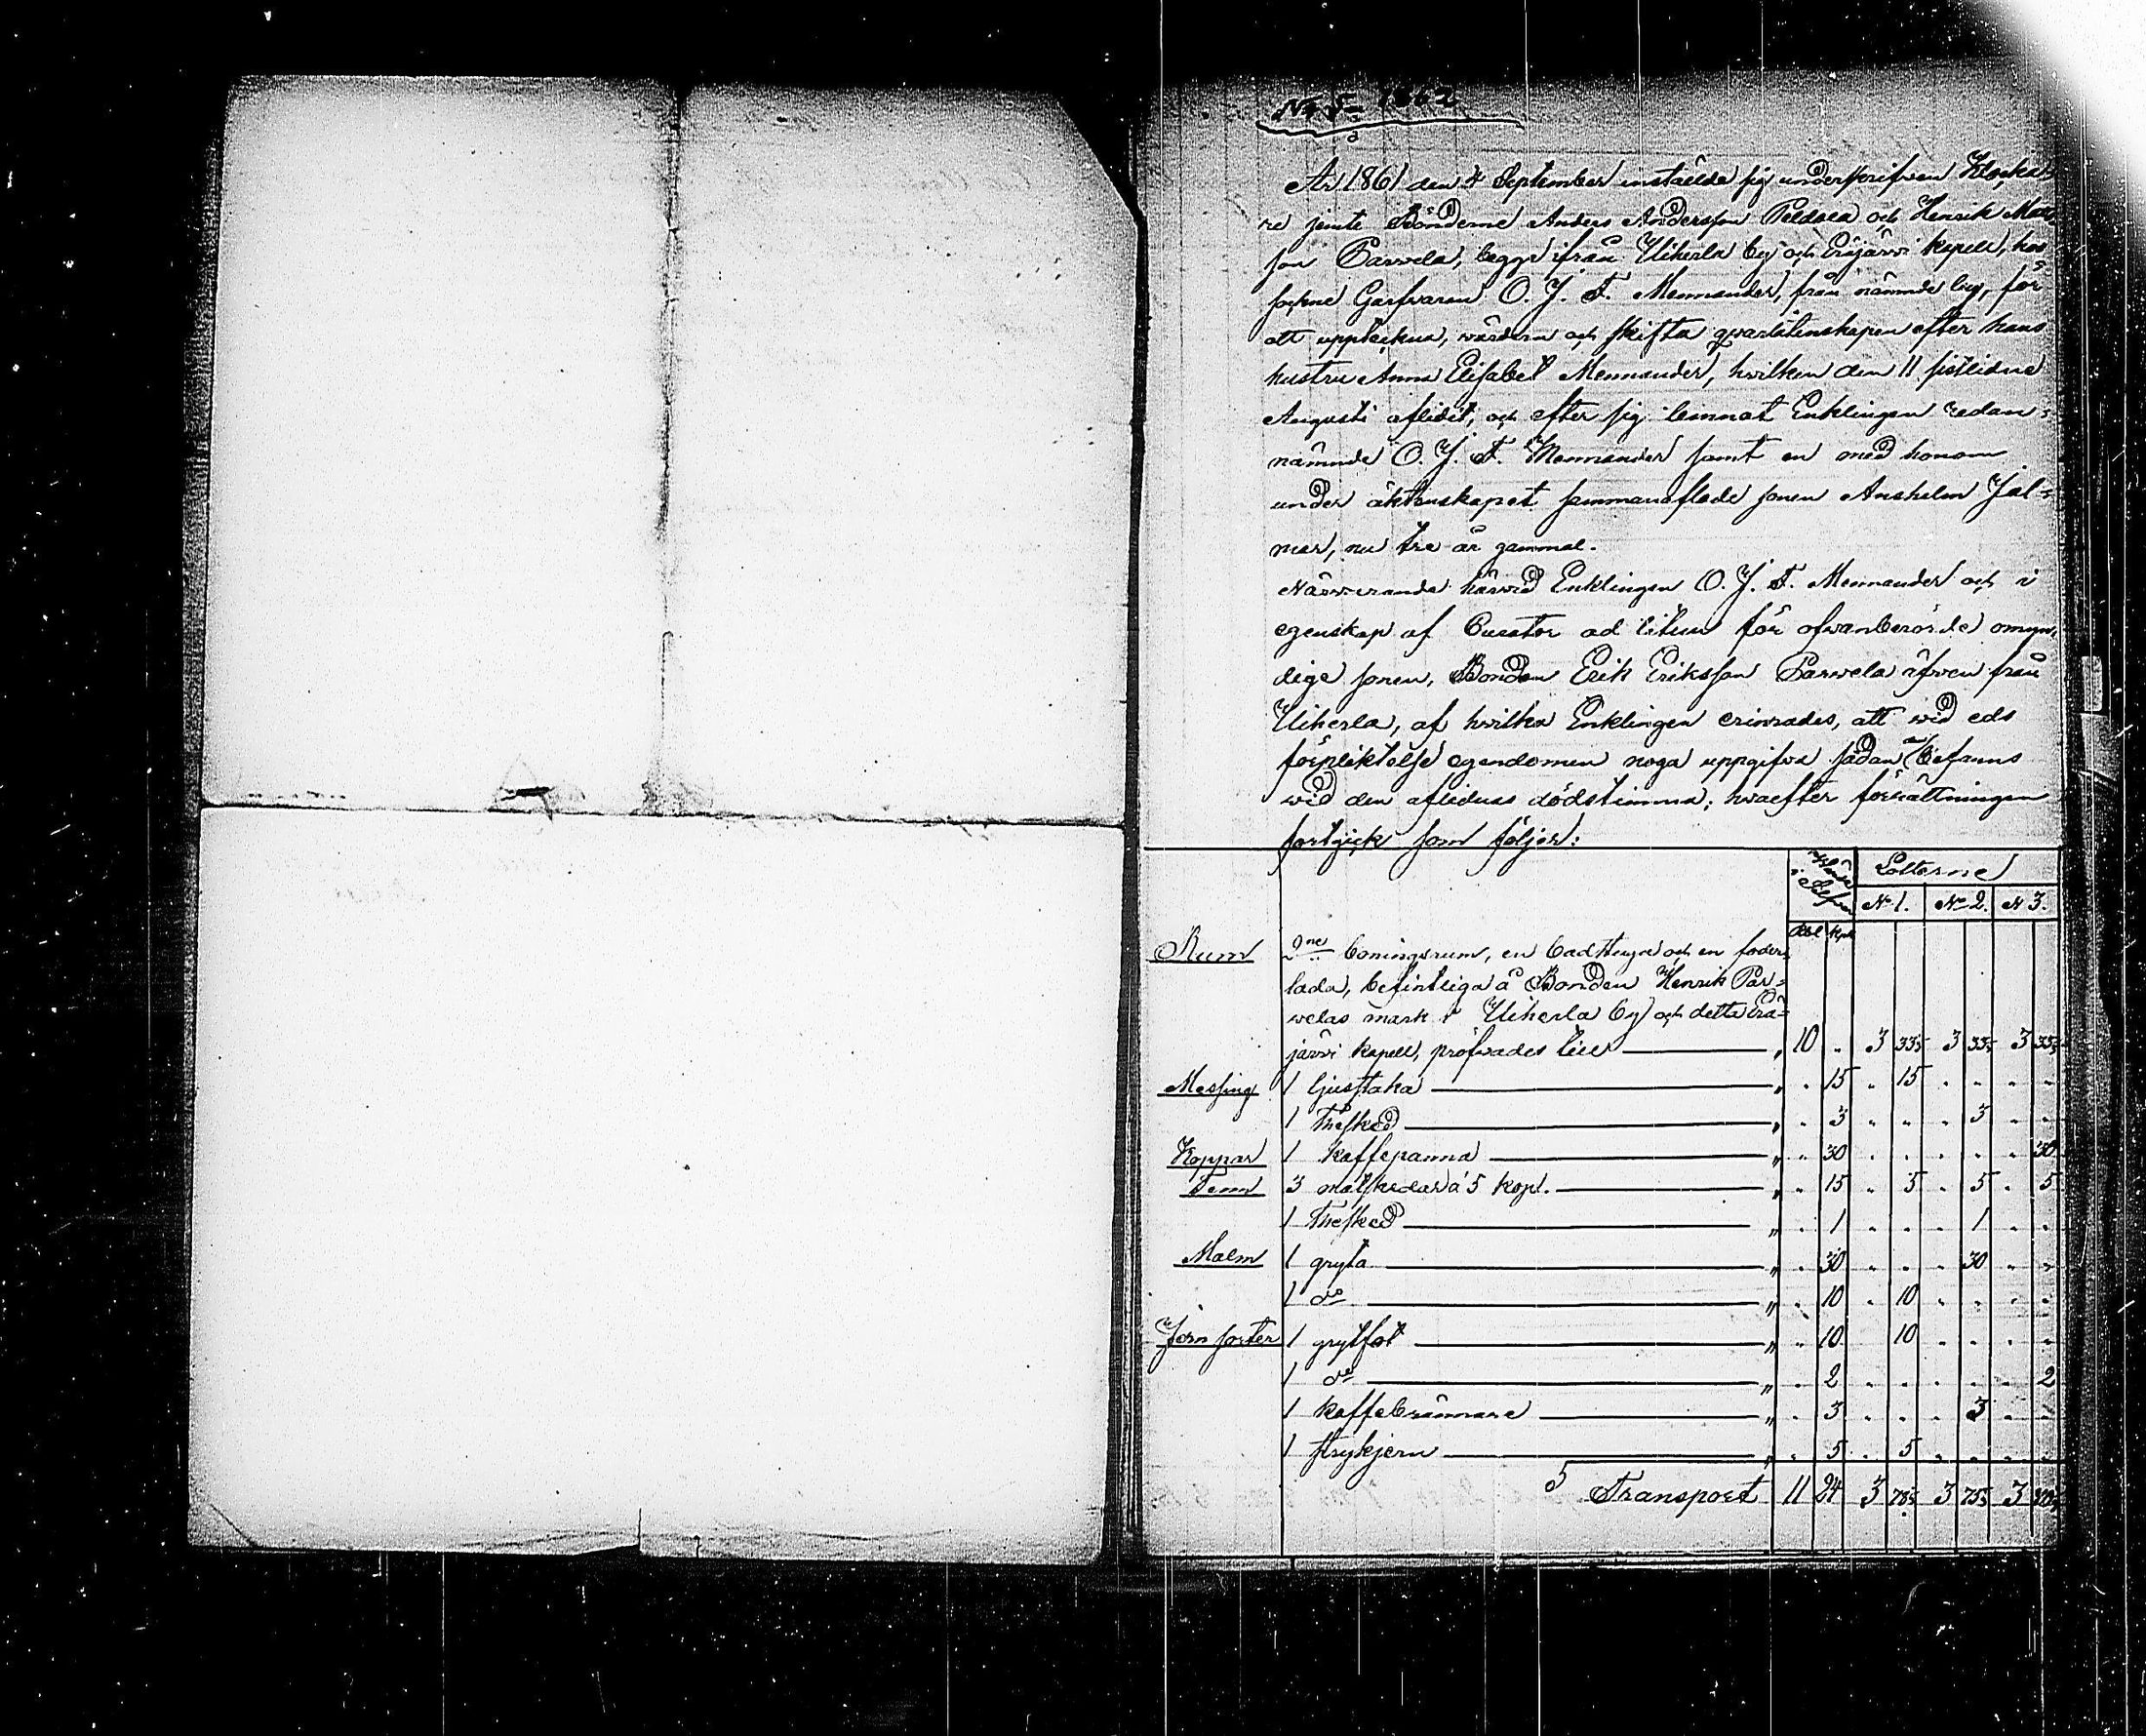 No 5 1862
År 1861 den 4 September instälde sig underskrifven Klocka-
re jemte Bönderne Anders Andersson Peldola och Henrik Mats
son Parvela, begge ifrån Uiherla by och Eräjärvi kapell, hos
sockne Garfvaren O. J. F. Mennander, från nämnde by, för
att uppteckna, värdera och skifta qvarlåtenskapen efter hans
hustru Anna Elisabet Mennander, hvilken den 11 sistlidne
Augusti aflidit, och efter sig lemnat Enklingen redan-
nämnde O. J. F. Mennander samt en med honom
under äktenskapet sammanaflade sonen Anshelm Jal-
mar, nu tre år gammal.
Närvarande härvid Enklingen O. J. F. Mennander och i
egenskap af Curator ad litem för ofvanberörde omyn-
dige sonen, Bonden Erik Eriksson Parvela äfven från
Uiherla, af hvilka Enklingen erinrades, att vid eds
förpliktelse egendomen noga uppgifva sådan befanns
vid den aflidnas dödstimma; hvarefter förrättningen
fortgick som följer:
Värde i Silfver Lotterne
N 1. No 2. N 3.
Rbl Kop
Rum 2ne boningsrum, en badstuga och en foder-
lada, befintliga å Bonden Henrik Par-
velas mark i Uiherla by och detta Erä-
järvi kapell, pröfvades till " 10 . 3 33⅓ 3 33⅓ 3 33⅓
Messing 1 ljusstaka " . 15 . 15 . . . .
1 Thesked " . 3 . . . 3 . .
Koppar 1 kaffepanna " . 30 . . . . . 30
Tenn 3 matskedar á 5 kop. " . 15 . 5 . 5 . 5
1 Thesked " . 1 . . . 1 . .
Malm 1 gryta " . 30 . . . 30 . .
1 do " . 10 . 10 . . . .
Jern sorter 1 grytfot " . 10 . 10 . . . .
1 do " . 2 . . . . . 2
1 kaffebrännare " . 3 . . . 3 . .
1 strykjern " . 5 . 5 . . . .
Transport 11 24 3 78⅓ 3 75⅓ 3